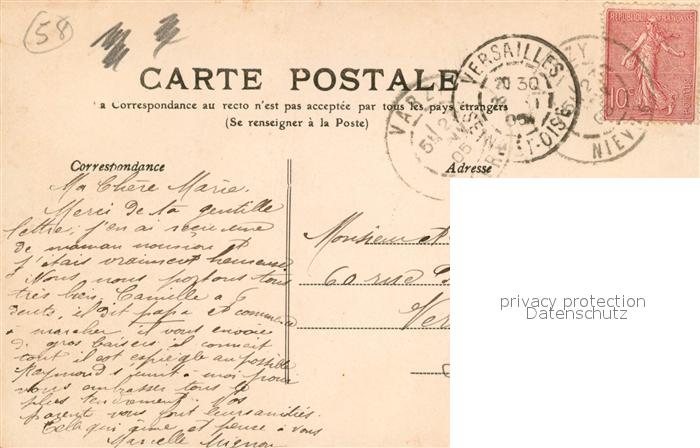 58
CARTE POSTALE
La Correspondance au recto n'est pas acceptée par tous les pays étrangers
(Se renseigner à la Poste)
Correspondance
Adresse
VERSAILLES
20 30
05
ET-OISE
NIEVRE
REPUBLIQUE FRANÇAISE
10c
Ma Chère Marie.
Merci de ta gentille
lettre; j'en ai reçu une
de maman
j'étais vraiment heureuse
Nous nous portons tous
très bien, Camille a 6
dents, il dit papa et commence
à marcher il vous envoie
de gros baisers il connait
tout il est espiègle au possible
Raymond s'unit à moi pour
vous embrasser tous le
plus tendrement. Vos
parents vous font leurs amitiés.
Celle qui aime et pense à vous
Marcelle Mignon
Monsieur et
60 rue
Ver
privacy protection
Datenschutz